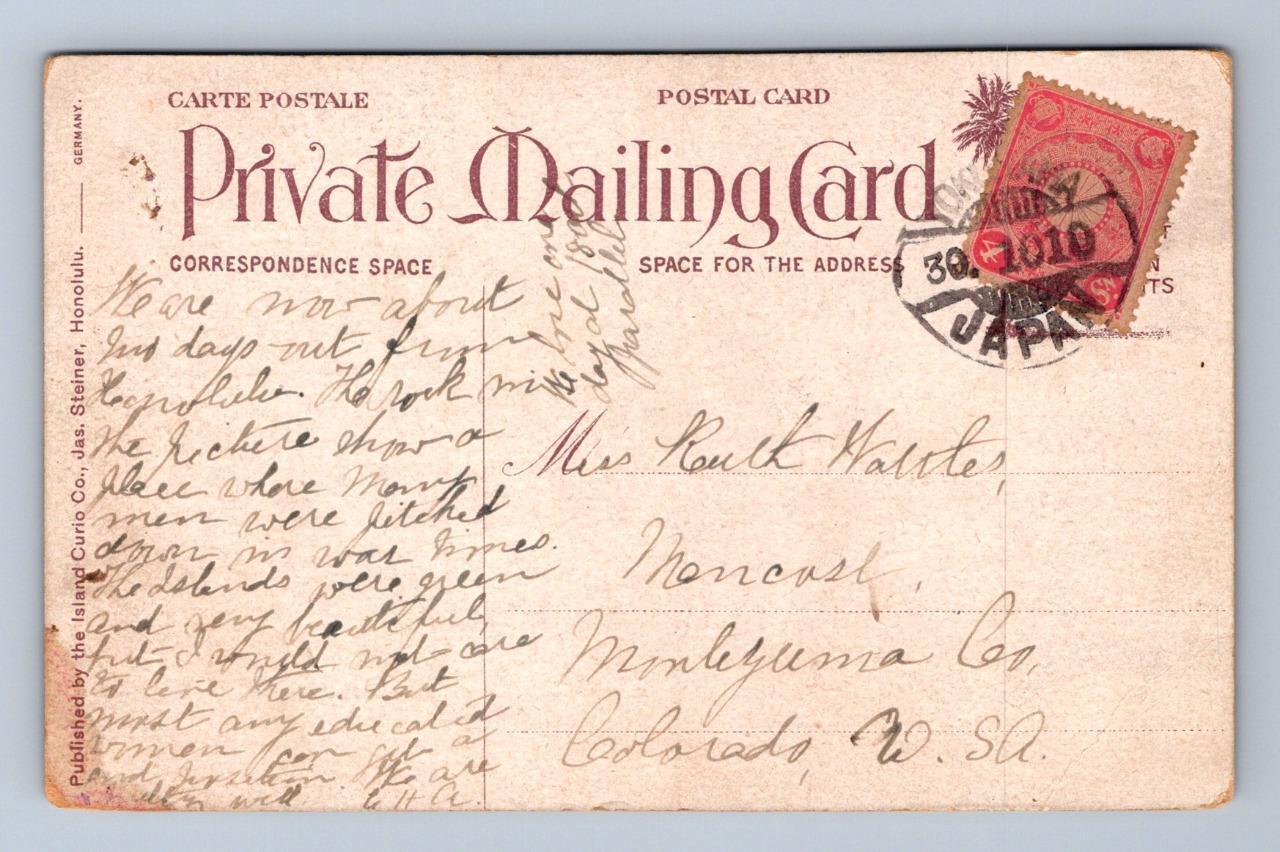 CARTE POSTALE
POSTAL CARD
Private Mailing Card
CORRESPONDENCE SPACE
SPACE FOR THE ADDRESS
Published by the Island Curio Co., Jas. Steiner, Honolulu. — GERMANY.
We are now about
two days out from
Honolulu. The rock in
the picture show a
place where many
men were pitched
down in war times.
The Islands were green
and very beautiful
but I would not care
to live there. But
most any educated
women can get a
good position. We are
all well
We lose one
day at 180
parallel
30. 10 10
JAPAN
4
Sn
N
TS
Miss Ruth Wattles,
Mancos,
Montezuma Co,
Colorado, U. SA.